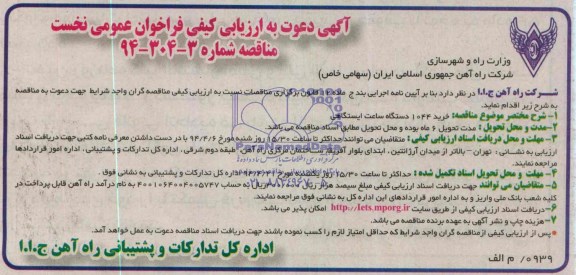 آگهی دعوت به ارزیابی کیفی فراخوان عمومی نخست
مناقصه شماره ۳-۳۰۴-۹۴
وزارت راه و شهرسازی
شرکت راه آهن جمهوری اسلامی ایران (سهامی خاص)
شرکت راه آهن ج.ا.ا در نظر دارد بنا بر آیین نامه اجرایی بند ج ماده ۱۲ قانون برگزاری مناقصات نسبت به ارزیابی کیفی مناقصه گران واجد شرایط جهت دعوت به مناقصه
به شرح زیر اقدام نماید.
۱- شرح مختصر موضوع مناقصه: خرید ۱۰۴۴ دستگاه ساعت ایستگاهی
۲-مدت و محل تحویل: مدت تحویل ۶ ماه بوده و محل تحویل مطابق اسناد مناقصه می باشد.
۳- مهلت و محل دریافت اسناد ارزیابی کیفی: متقاضیان می توانند حداکثر تا ساعت ۱۵/۳۰ روز شنبه مورخ ۹۴/۴/۶ با در دست داشتن معرفی نامه کتبی جهت دریافت اسناد
ارزیابی به نشانی: تهران - بالاتر از میدان آرژانتین، ابتدای بلوار آفریقا، ساختمان مرکزی راه آهن، طبقه دوم شرقی، اداره کل تدارکات و پشتیبانی، اداره امور قراردادها
مراجعه نمایند.
۴- مهلت و محل تحویل اسناد تکمیل شده: حداکثر تا ساعت ۱۵/۳۰ روز یکشنبه مورخ اداره کل تدارکات و پشتیبانی به نشانی فوق.
۵- متقاضیان می توانند جهت دریافت اسناد ارزیابی کیفی مبلغ سیصد هزار ریال به حساب ۴۰۰۱۰۶۴۰۰۴۰۰۵۷۴۷ به نام درآمد راه آهن قابل پرداخت در
کلیه شعب بانک ملی واریز و به اداره امور قراردادهای این اداره کل به نشانی فوق مراجعه نمایند.
۶-دریافت اسناد ارزیابی کیفی از طریق سایت http://iets.mporg.ir امکان پذیر می باشد.
۷- هزینه چاپ و نشر آگهی به عهده برنده مناقصه می باشد.
پس از ارزیابی کیفی ازمناقصه گران واجد شرایط که حداقل امتیاز لازم را کسب نموده باشند جهت دریافت اسناد مناقصه دعوت به عمل خواهد آمد.
اداره کل تدارکات و پشتیبانی راه آهن ج.ا.ا
۰۹۳۹/ م الف